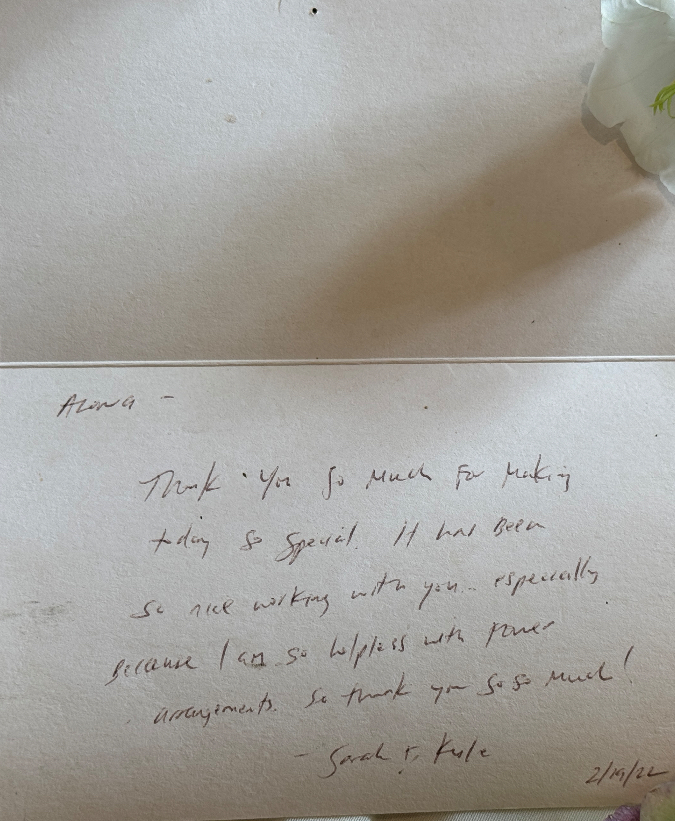 Alana -
Thank you so much for making
today so special. It has been
so nice working with you.. especially
because I am so helpless with flower
arrangements. So thank you so so much!
- Sarah & Kyle
2/19/22